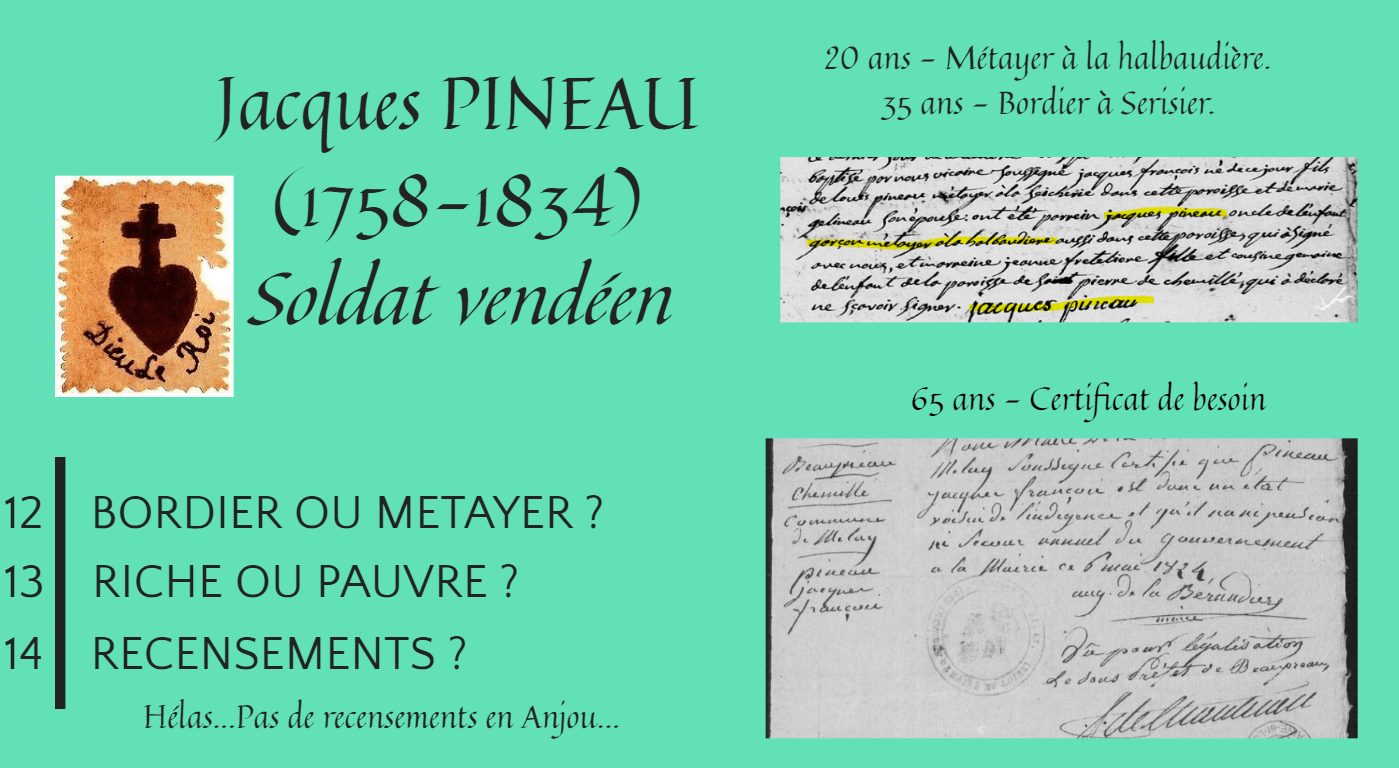 Jacques PINEAU
(1758-1834)
Soldat vendéen
Dieu Le Roi
12 BORDIER OU METAYER ?
13 RICHE OU PAUVRE ?
14 RECENSEMENTS ?
Hélas...Pas de recensements en Anjou...
20 ans - Métayer à la halbaudière.
35 ans - Bordier à Serisier.
baptisé par nous vicaire soussigné jacques françois né de ce jour fils
de louis pineau métayer à la seicherie dans cette paroisse et de marie
gelineau son épouse: ont été parrein jacques pineau oncle de l'enfant
garçon métayer à la halbaudiere aussi dans cette paroisse, qui a signé
avec nous, et marreine jeanne fretelliere fille et cousine germaine
de l'enfant de la paroisse de saint pierre de chemillé, qui a déclaré
ne sçavoir signer. jacques pineau
65 ans - Certificat de besoin
Beaupréau
Chemillé
Commune
de Melay
pineau
jacques
françois
Melay Soussigné Certifie que pineau
jacques françois est dans un état
voisin de l'indigence et qu'il na ni pension
ni Secour annuel du gouvernement
a la Mairie ce 6 mai 1824
aug. de la Béraudiere
maire
Vu pour légalisation
Le sous Préfet de Beaupreau